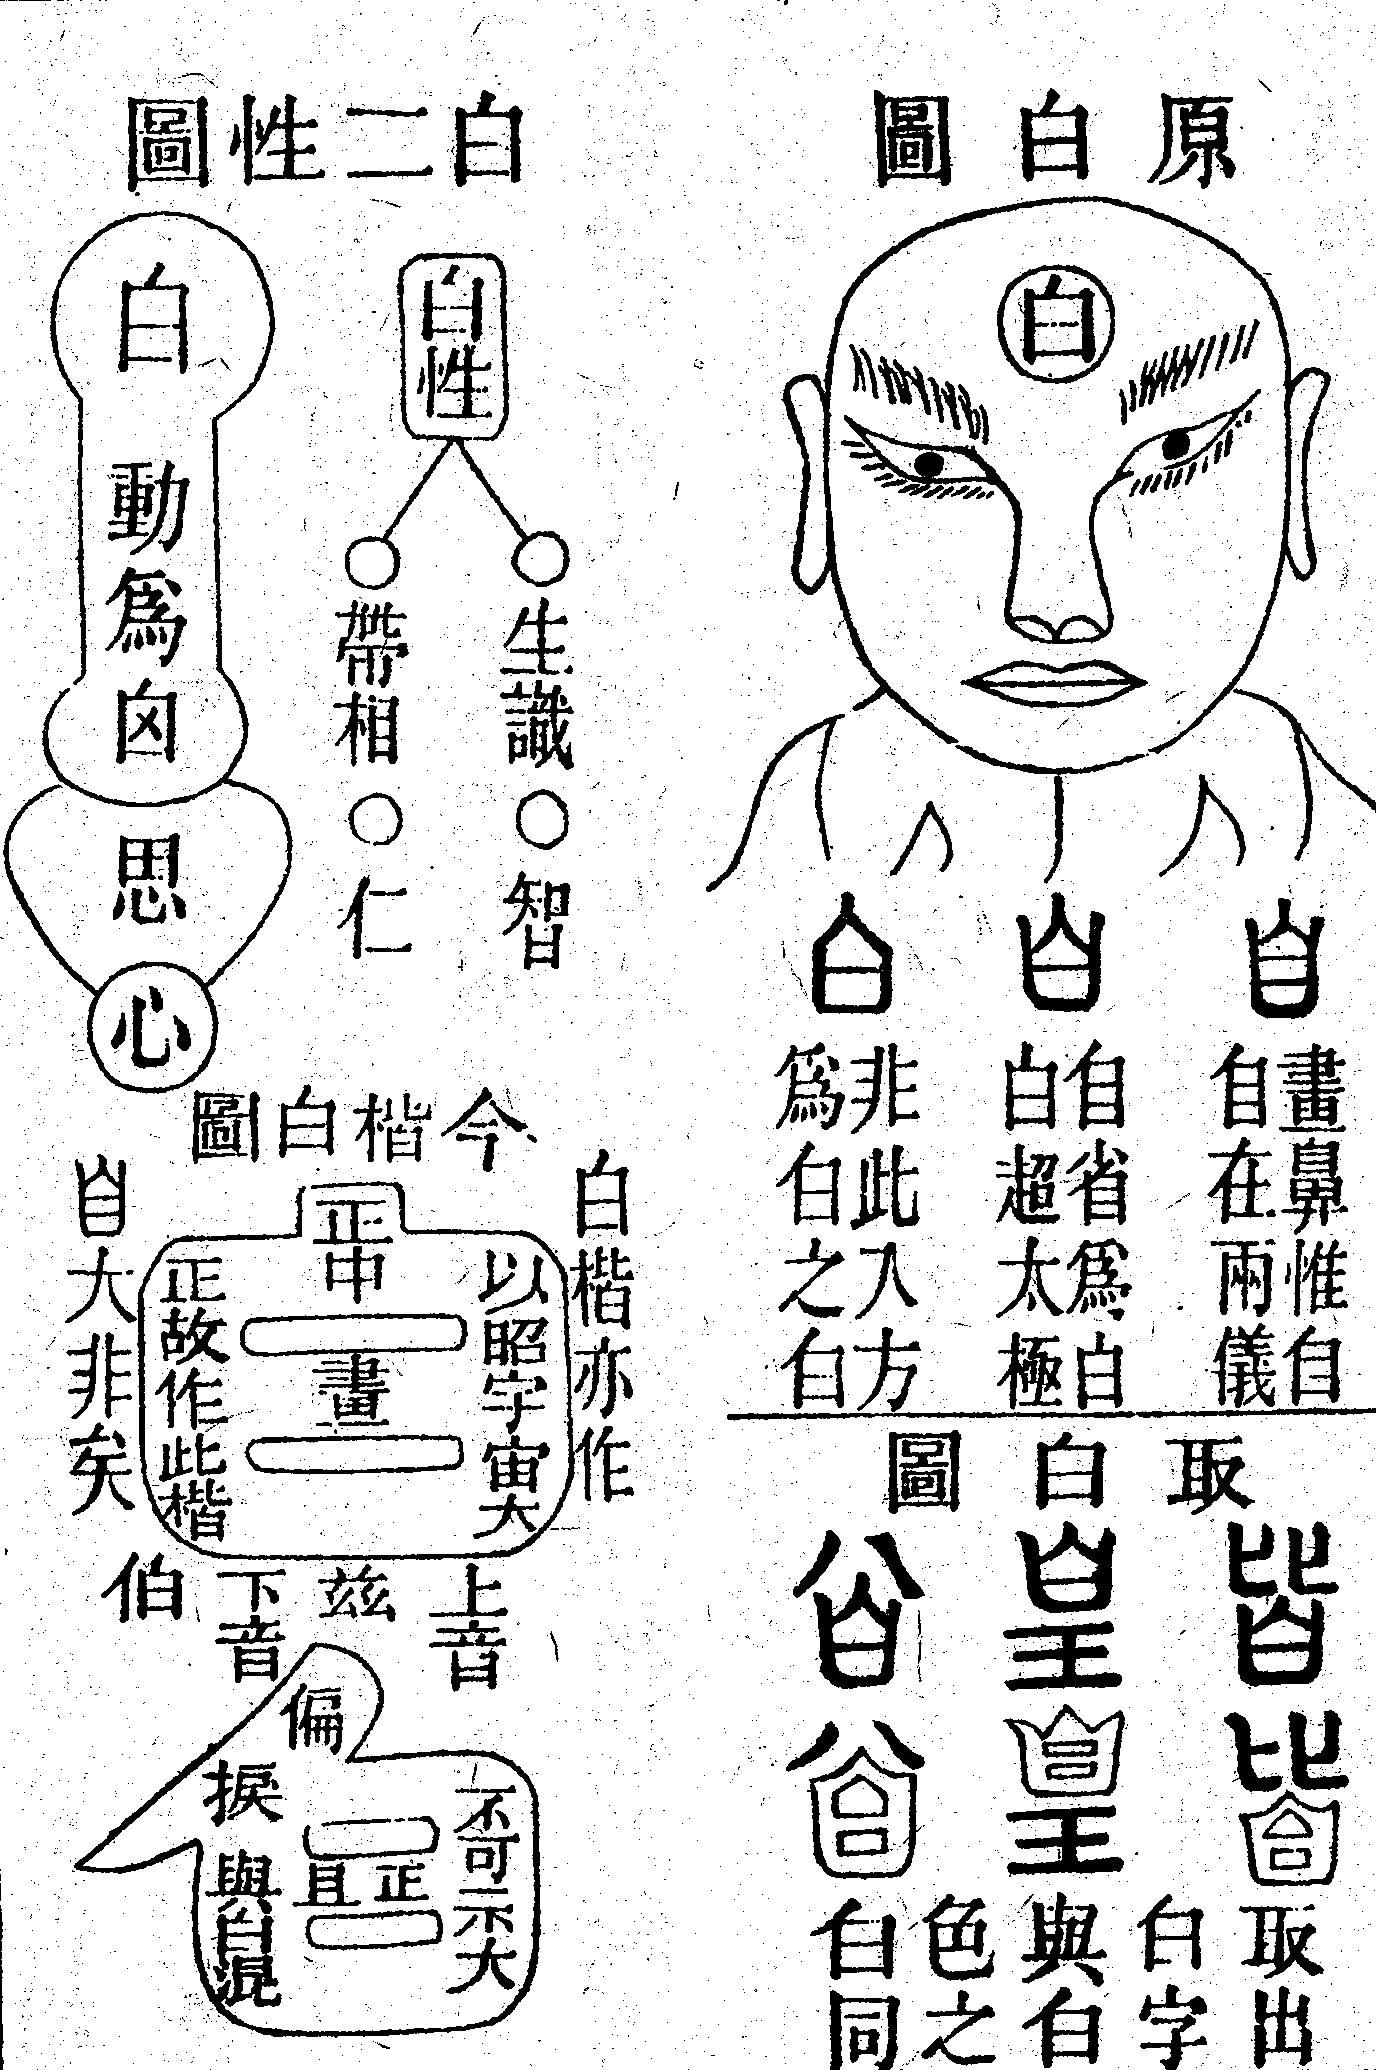 原白圖
白
畫鼻惟自
自在兩儀
自省爲白
白超太極
非此入方
爲白之白
取白圖
皆
皇
取出
白字
與白
色之
白同
白二性圖
白性
生識
智
帶相
仁
白
動爲囟
思
心
今楷白圖
白楷亦作
以昭宇宙大
正中畫
正故作此楷
自大非矣
上音
兹
下音
伯
偏
捩
不可示大
正且
與白混